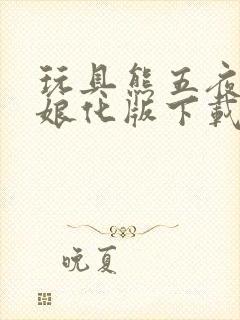 玩具熊五夜
娘化版下载
晚夏